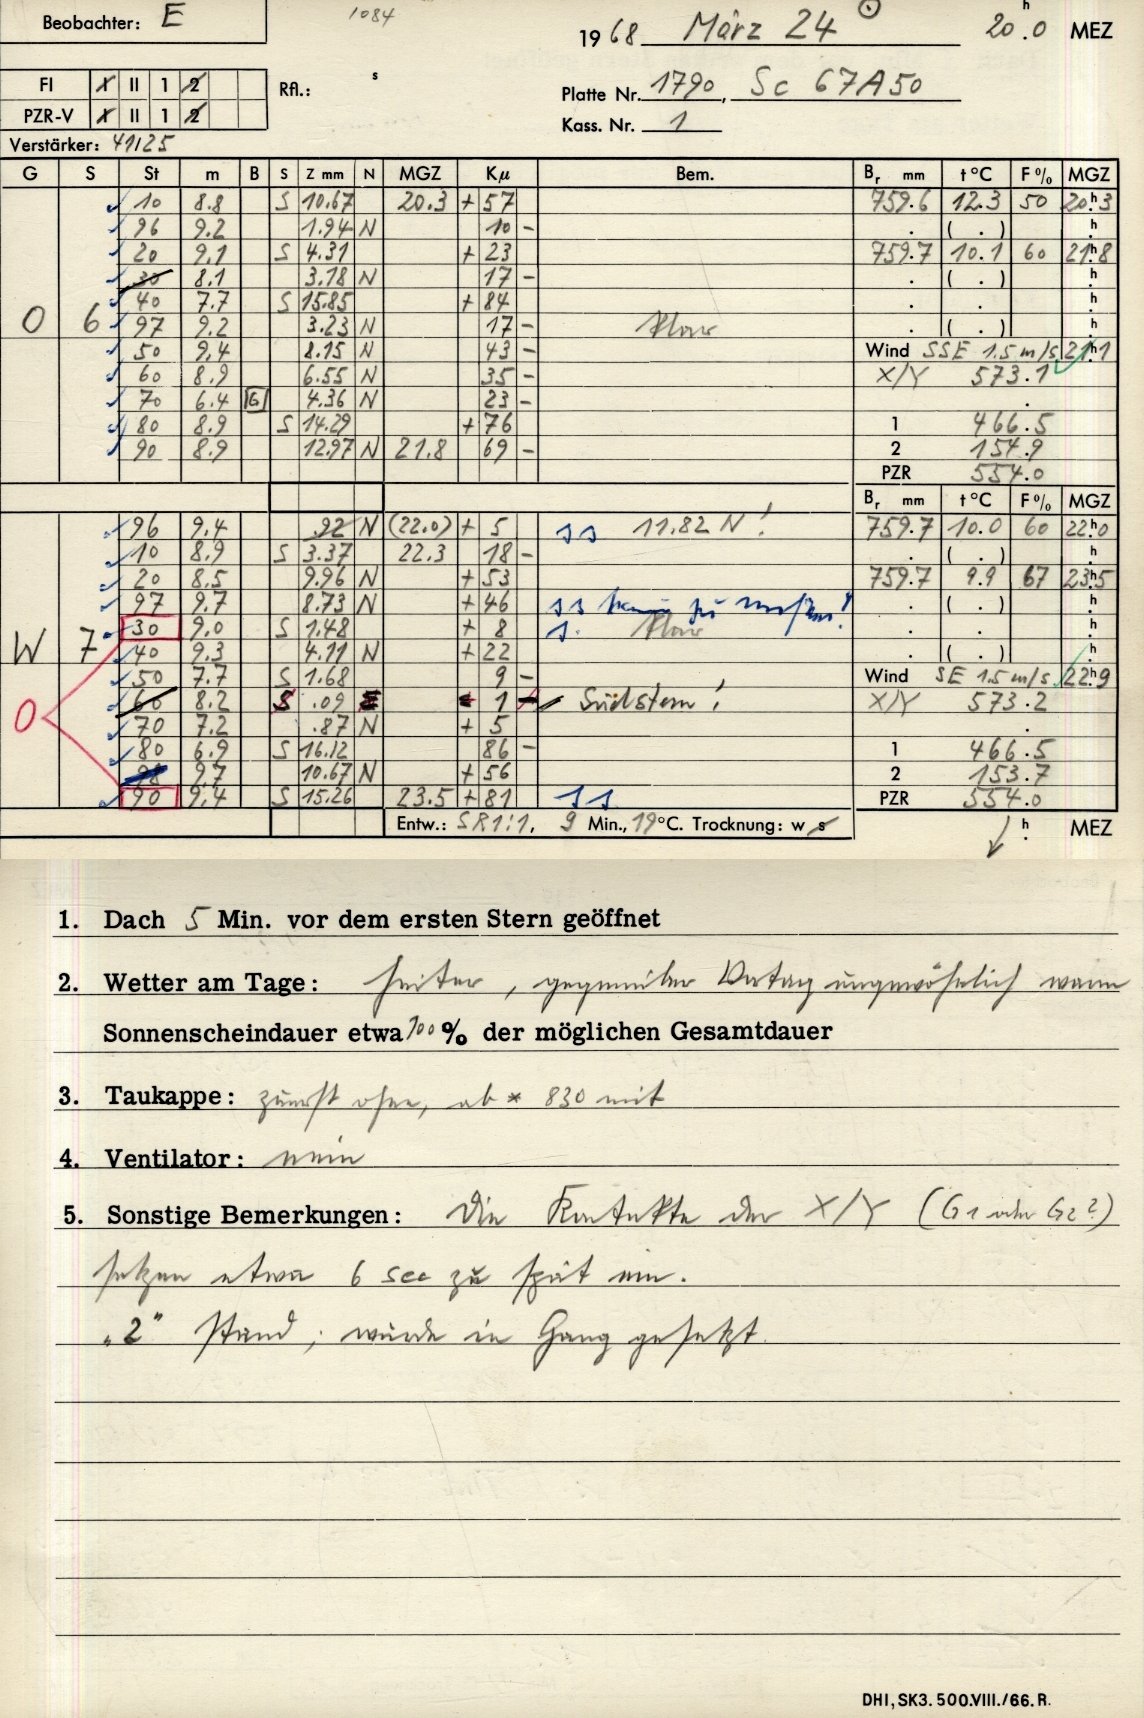 Beobachter: E 1084 1968 März 24 ⊙ 20h.0 MEZ
FI X II 1 2 Rfl.: s Platte Nr. 1790, Sc 67A50
PZR-V X II 1 2 Kass. Nr. 1
Verstärker: 41/25
G S St m B S Z mm N MGZ Kμ Bem. Br mm t °C F % MGZ
10 8.8 S 10.67 20.3 + 57 759.6 12.3 50 20h3
96 9.2 1.94 N 10 - . ( . ) h
20 9.1 S 4.31 + 23 759.7 10.1 60 21h8
30 8.1 3.18 N 17 - . ( . ) h
40 7.7 S 15.85 + 84 . . h
O 6 97 9.2 3.23 N 17 - klar . ( . ) h
50 9.4 8.15 N 43 - Wind SSE 1.5 m/s 21h1
60 8.9 6.55 N 35 - X/Y 573.1
70 6.4 G 4.36 N 23 - .
80 8.9 S 14.29 + 76 1 466.5
90 8.9 12.97 N 21.8 69 - 2 154.9
PZR 554.0
Br mm t °C F % MGZ
96 9.4 .92 N (22.0) + 5 ss 11.82 N! 759.7 10.0 60 22h0
10 8.9 S 3.37 22.3 18 - . ( . ) h
20 8.5 9.96 N + 53 759.7 9.9 67 23h5
97 9.7 8.73 N + 46 ss kaum zu messen! . ( . ) h
W 7 30 9.0 S 1.48 + 8 s. klar . . h
40 9.3 4.11 N + 22 . ( . ) h
50 7.7 S 1.68 9 - Wind SE 1.5 m/s 22h9
O 60 8.2 S .09 1 - Südstern! X/Y 573.2
70 7.2 .87 N + 5 .
80 6.9 S 16.12 86 - 1 466.5
98 9.7 10.67 N + 56 2 153.7
90 9.4 S 15.26 23.5 + 81 ss PZR 554.0
Entw.: SR1:1, 9 Min., 19°C. Trocknung: w s h . MEZ
1. Dach 5 Min. vor dem ersten Stern geöffnet
2. Wetter am Tage: heiter, gegenüber Vortag ungewöhnlich warm
Sonnenscheindauer etwa 100 % der möglichen Gesamtdauer
3. Taukappe: zuerst ohne, ab * 830 mit
4. Ventilator: nein
5. Sonstige Bemerkungen: Die Kontakte der X/Y (G1 oder G2?)
setzen etwa 6 sec zu spät ein.
„2" stand, wurde in Gang gesetzt.
DHI, SK3. 500.VIII./66. R.